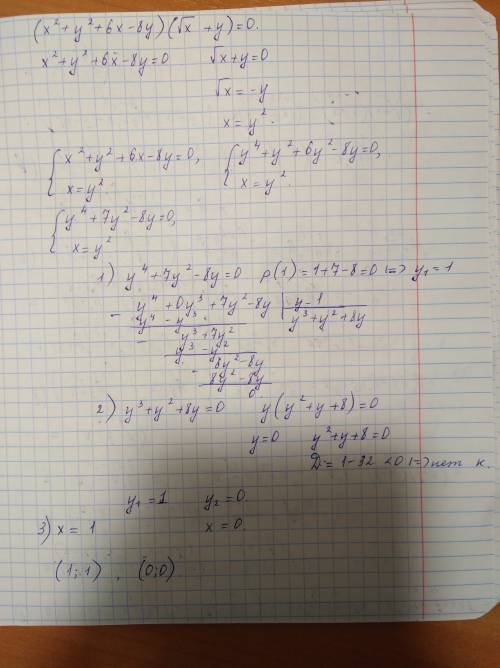 (x² + y² + 6x - 8y)(√x + y) = 0.
x² + y² + 6x - 8y = 0    √x + y = 0
√x = -y
x = y².
{ x² + y² + 6x - 8y = 0,    { y⁴ + y² + 6y² - 8y = 0,
x = y²    x = y².
{ y⁴ + 7y² - 8y = 0,
x = y²
1) y⁴ + 7y² - 8y = 0    p(1) = 1 + 7 - 8 = 0 |=> y₁ = 1
- y⁴ + 0y³ + 7y² - 8y | y - 1
y⁴ - y³    y³ + y² + 8y
- y³ + 7y²
y³ - y²
- 8y² - 8y
8y² - 8y
0
2) y³ + y² + 8y = 0    y(y² + y + 8) = 0
y = 0    y² + y + 8 = 0
D = 1 - 32 < 0 |=> нет к.
y₁ = 1    y₂ = 0
3) x = 1    x = 0.
(1; 1), (0; 0)